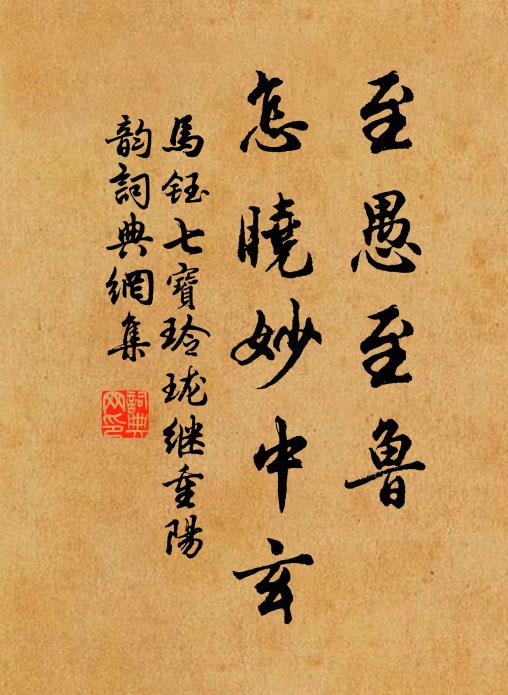 至愚至魯
怎曉妙中玄
馬鈺七寶玲珑继重陽
韵詞典網集
詞典网印